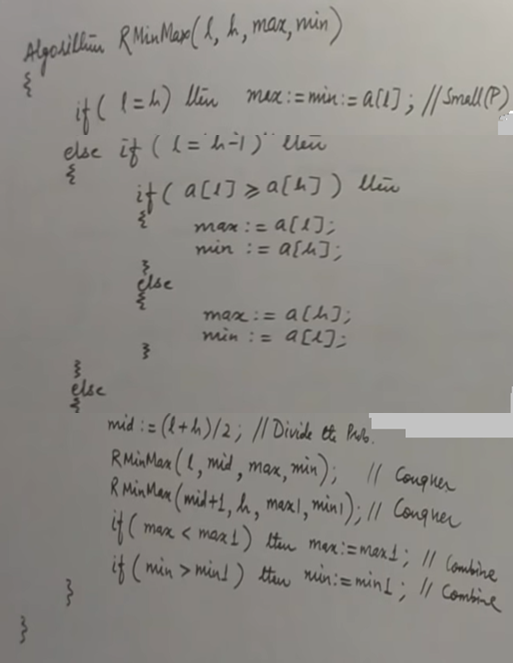 Algorithm RMinMax(l, h, max, min)
{
if( l=h) then max:=min:=a[l]; //Small(P)
else if( l= h-1) then
{
if( a[l] ≥ a[h] ) then
{ max:= a[l];
min := a[h];
}
else
{
max := a[h];
min := a[l];
}
}
else
{
mid:=(l+h)/2; //Divide the Prob.
RMinMax(l, mid, max, min); // Conquer
RMinMax(mid+1, h, max1, min1); // Conquer
if( max < max1) then max:=max1; // Combine
if( min > min1) then min:=min1; // Combine
}
}